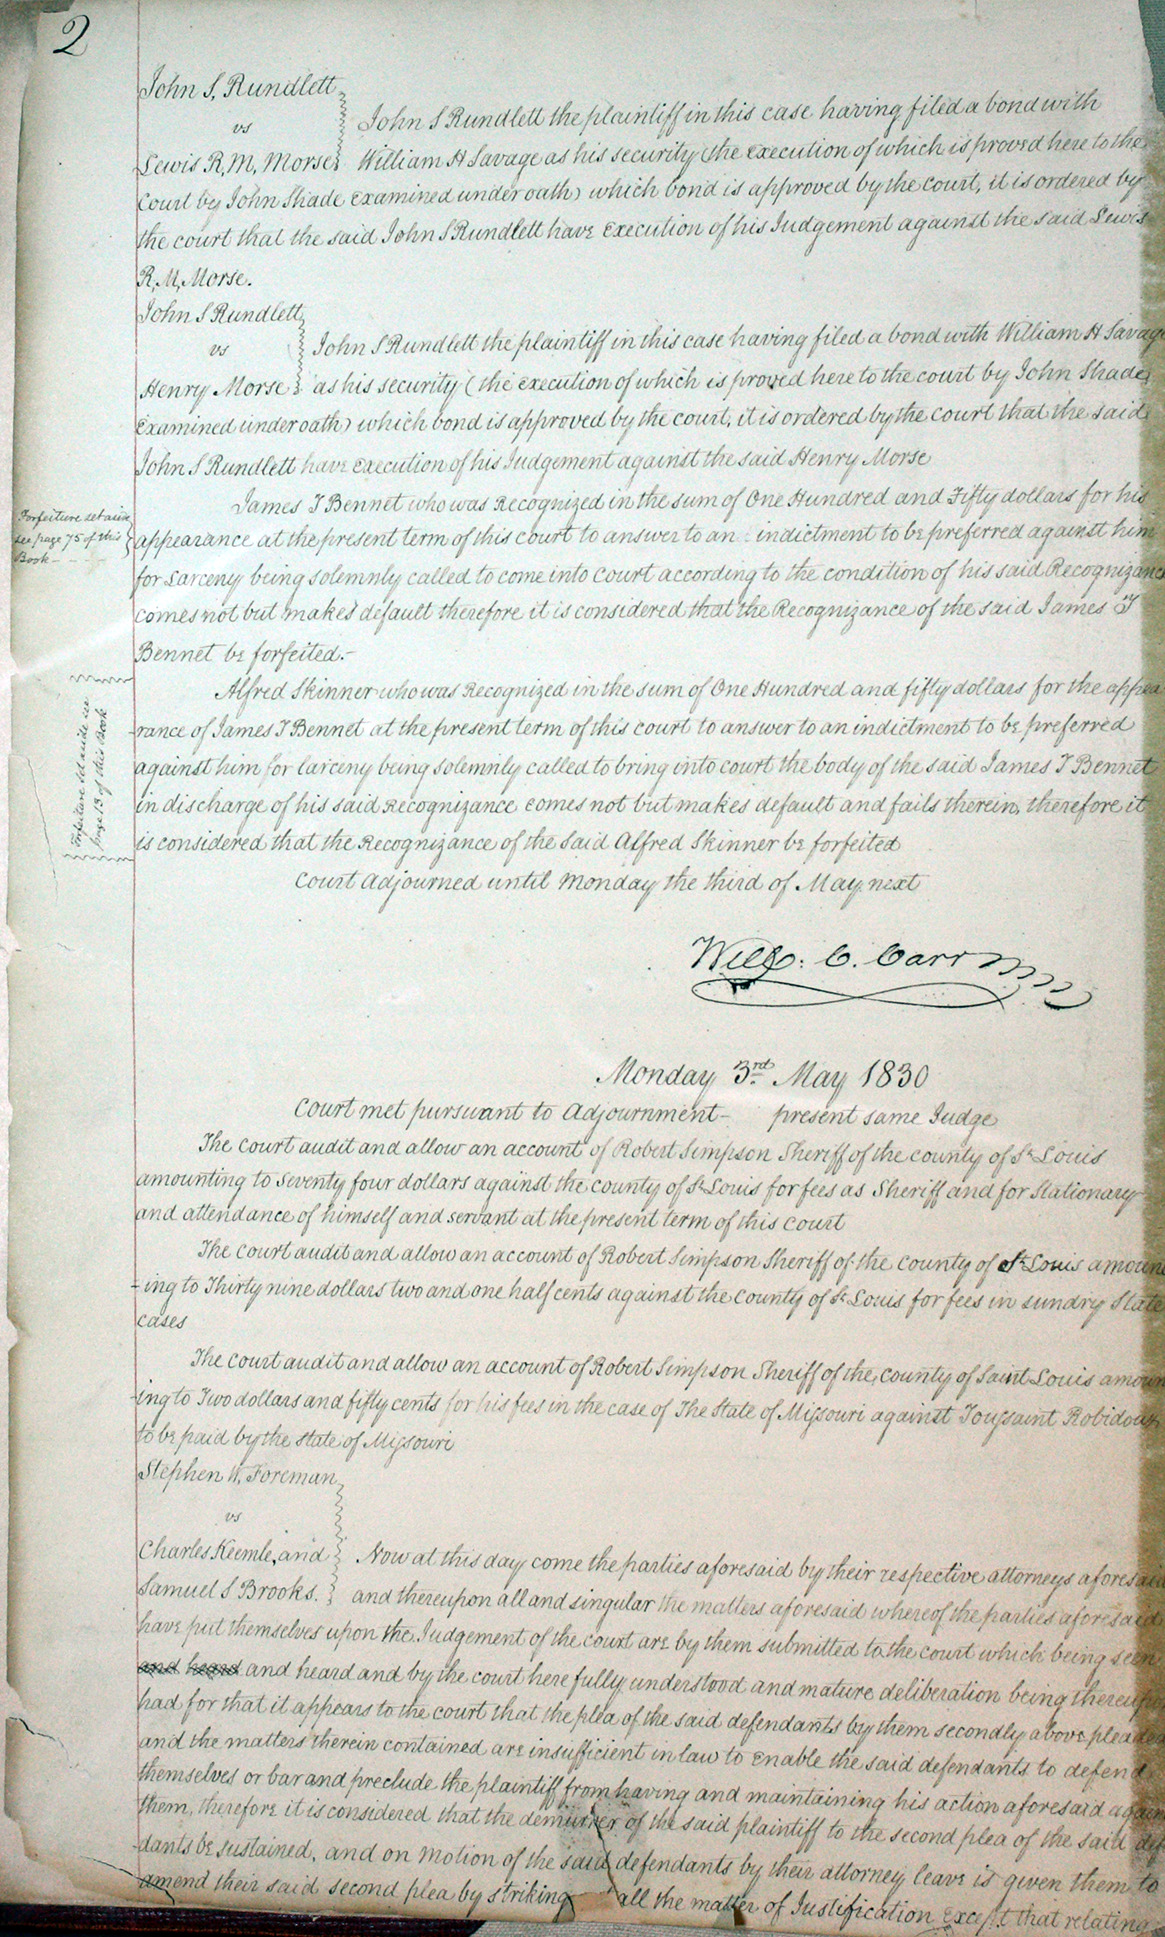 2
John S, Rundlett
vs
John S Rundlett the plaintiff in this case having filed a bond with
Lewis R, M, Morse William H Savage as his security (the execution of which is proved here to the
Court by John Shade examined under oath) which bond is approved by the court, it is ordered by
the court that the said John S Rundlett have execution of his Judgement against the said Lewis
R, M, Morse.
John S Rundlett
vs
John S Rundlett the plaintiff in this case having filed a bond with William H Savage
Henry Morse as his security (the execution of which is proved here to the court by John Shade
examined under oath) which bond is approved by the court, it is ordered by the court that the said
John S Rundlett have execution of his Judgement against the said Henry Morse
James T Bennet who was Recognized in the sum of One Hundred and Fifty dollars for his
Forfeiture set aside
see page 75 of this
Book -
appearance at the present term of this court to answer to an indictment to be preferred against him
for Larceny being solemnly called to come into court according to the condition of his said Recognizance
comes not but makes default therefore it is considered that the Recognizance of the said James T
Bennet be forfeited.-
Alfred Skinner who was Recognized in the sum of One Hundred and fifty dollars for the appea
Forfeiture set aside see
page 13 of this Book
rance of James T Bennet at the present term of this court to answer to an indictment to be preferred
against him for larceny being solemnly called to bring into court the body of the said James T Bennet
in discharge of his said Recognizance comes not but makes default and fails therein, therefore it
is considered that the Recognizance of the said Alfred Skinner be forfeited
Court Adjourned until Monday the third of May next
Will: C. Carr
Monday 3rd May 1830
Court met pursuant to Adjournment - present same Judge
The court audit and allow an account of Robert Simpson Sheriff of the county of St Louis
amounting to Seventy four dollars against the county of St Louis for fees as Sheriff and for Stationary
and attendance of himself and servant at the present term of this court
The court audit and allow an account of Robert Simpson Sheriff of the County of St Louis amount
-ing to Thirty nine dollars two and one half cents against the County of St Louis for fees in sundry State
cases
The court audit and allow an account of Robert Simpson Sheriff of the County of Saint Louis amoun
-ing to Two dollars and fifty cents for his fees in the case of The State of Missouri against Toussaint Robidoux
to be paid by the state of Missouri
Stephen W. Foreman
vs
Charles Keemle, and Now at this day come the parties aforesaid by their respective attorneys aforesaid
Samuel S Brooks. and thereupon all and singular the matters aforesaid whereof the parties aforesaid
have put themselves upon the Judgement of the court are by them submitted to the court which being seen
and heard and heard and by the court here fully understood and mature deliberation being thereupon
had for that it appears to the court that the plea of the said defendants by them secondly above pleaded
and the matters therein contained are insufficient in law to enable the said defendants to defend
themselves or bar and preclude the plaintiff from having and maintaining his action aforesaid again
them, therefore it is considered that the demurrer of the said plaintiff to the second plea of the said def
-dants be sustained, and on motion of the said defendants by their attorney leave is given them to
amend their said second plea by striking all the matter of Justification except that relating